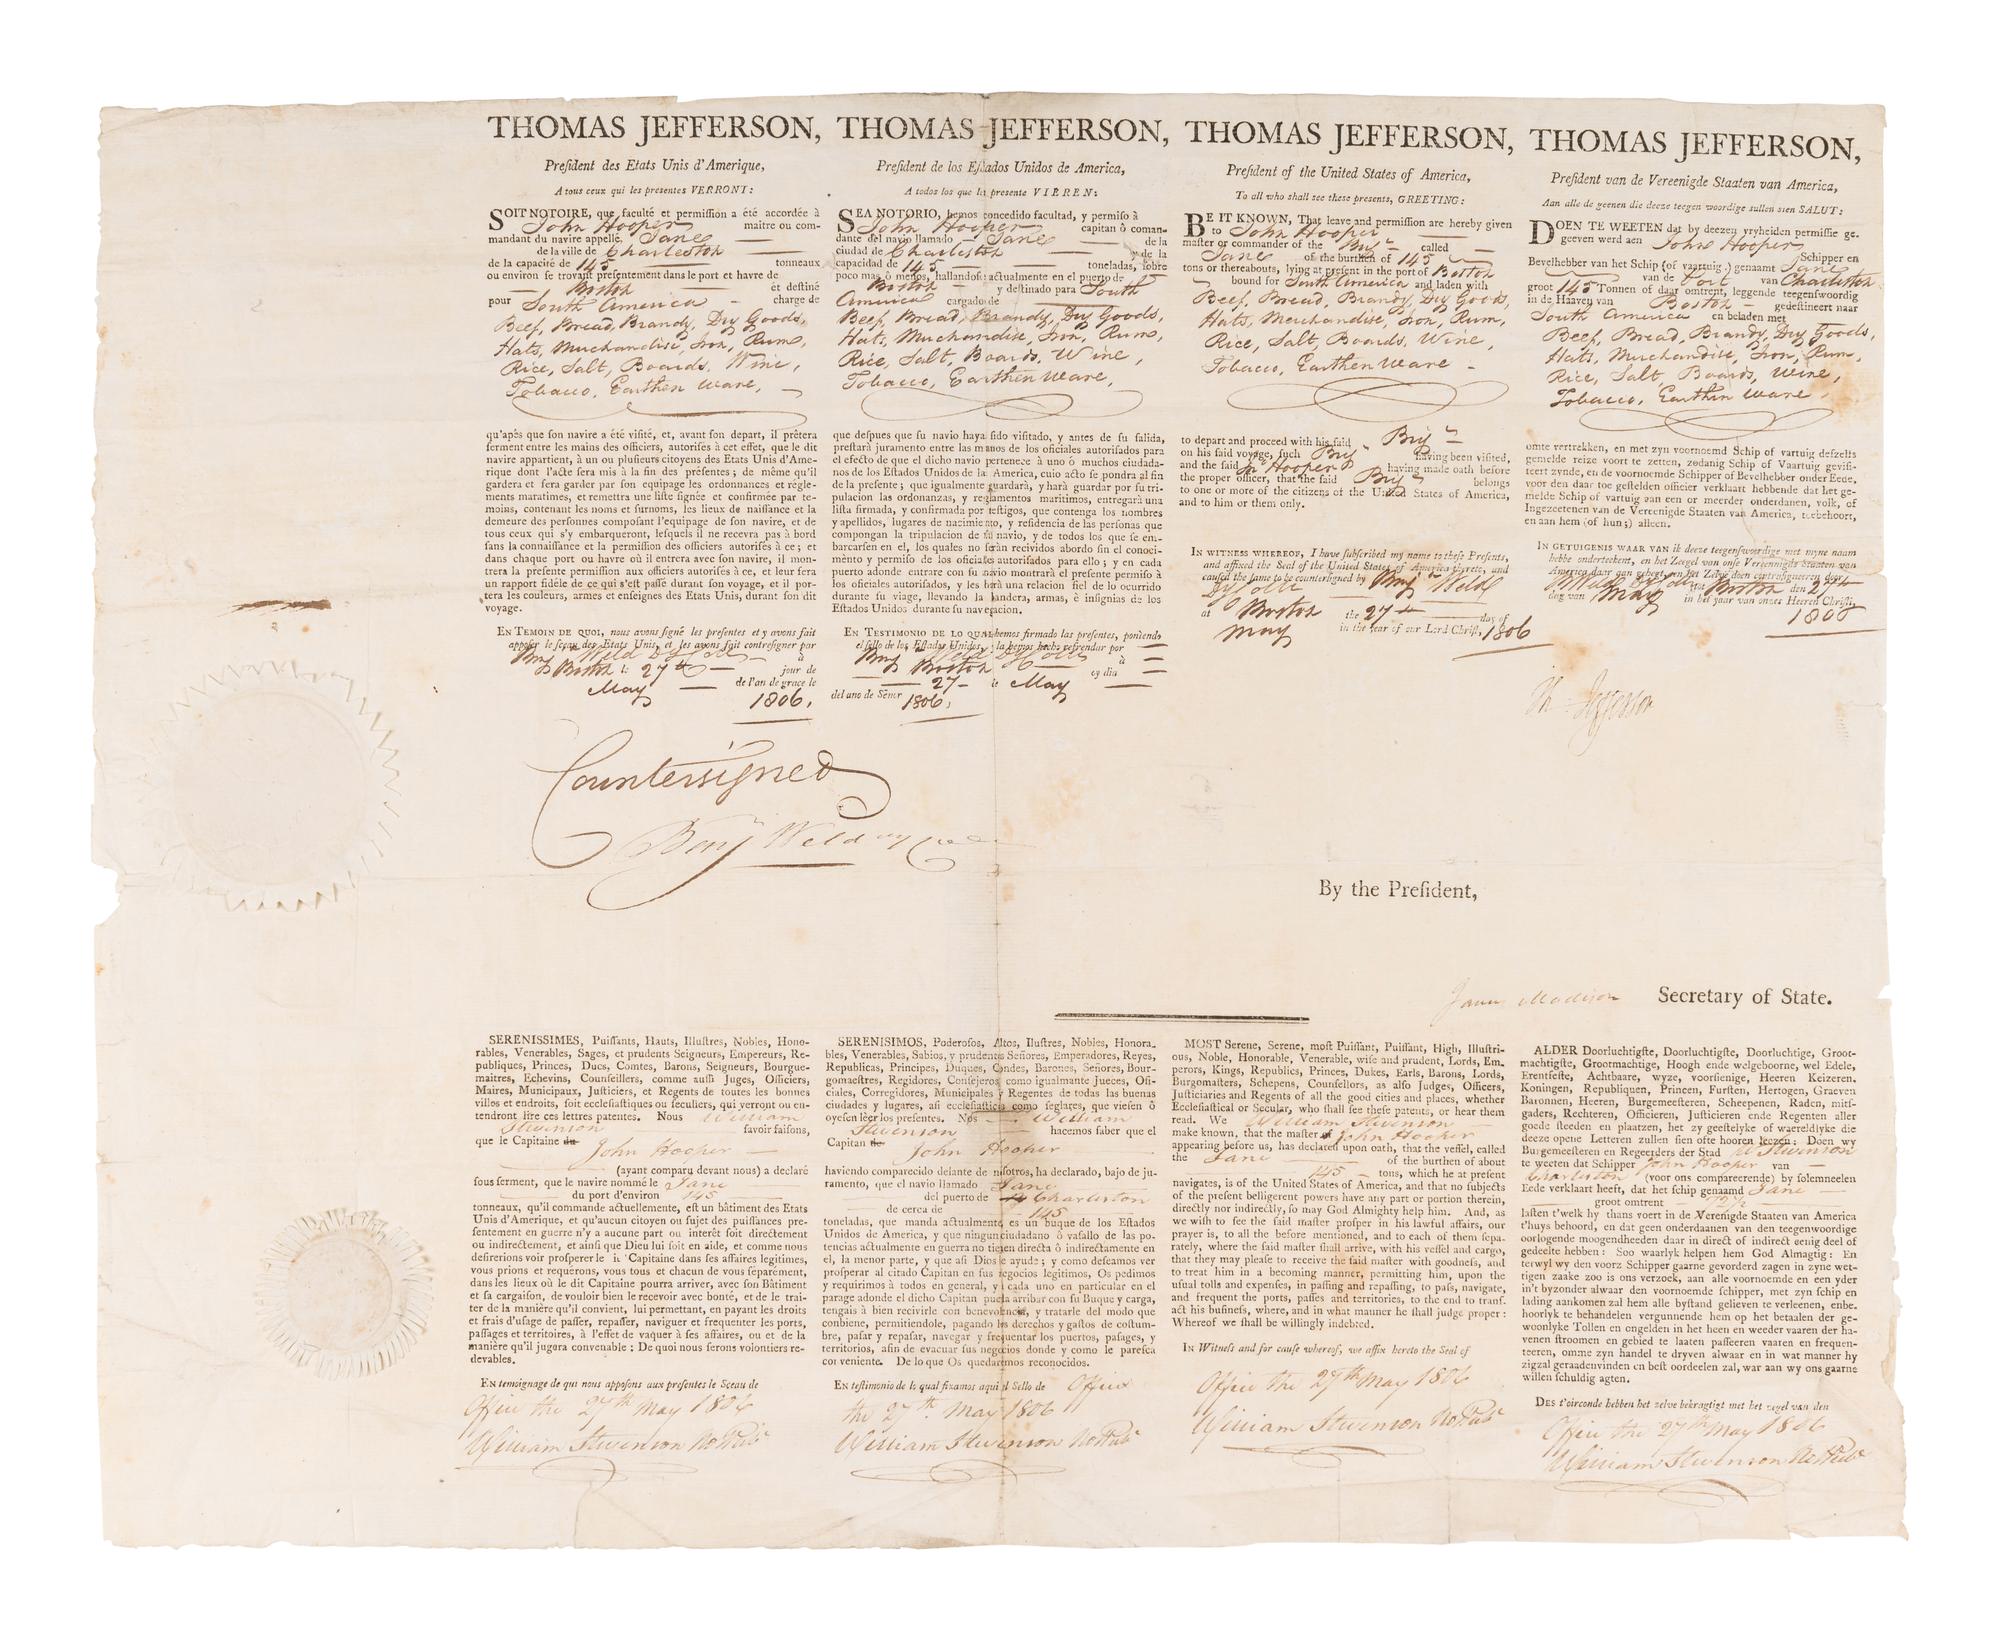 THOMAS JEFFERSON,
President des Etats Unis d'Amerique,
A tous ceux qui les presentes VERRONT:
SOIT NOTOIRE, que faculté et permission a été accordée à
John Hooper maitre ou com-
mandant du navire appellé, Jane
de la ville de Charleston
de la capacité de 145 tonneaux
ou environ se trovant présentement dans le port et havre de
Boston et destiné
pour South America charge de
Beef, Bread, Brandy, Dry Goods,
Hats, Merchandise, Iron, Rum,
Rice, Salt, Boards, Wine,
Tobacco, Earthen ware,
qu'après que son navire a été visité, et, avant son depart, il prêtera
serment entre les mains des officiers, autorisés à cet effet, que le dit
navire appartient, à un ou plusieurs citoyens des Etats Unis d'Ame-
rique dont l'acte sera mis à la fin des présentes; de même qu'il
gardera et fera garder par son equipage les ordonnances et régle-
ments maratimes, et remettra une liste signée et confirmée par te-
moins, contenant les noms et surnoms, les lieux de naissance et la
demeure des personnes composant l'equipage de son navire, et de
tous ceux qui s'y embarqueront, lesquels il ne recevra pas à bord
sans la connaissance et la permission des officiers autorisés à ce; et
dans chaque port ou havre où il entrera avec son navire, il mon-
trera la presente permission aux officiers autorisés à ce, et leur fera
un rapport fidéle de ce qui s'est passé durant son voyage, et il por-
tera les couleurs, armes et enseignes des Etats Unis, durant son dit
voyage.
EN TEMOIN DE QUOI, nous avons signé les presentes et y avons fait
apposer le sceau des Etats Unis, et les avons fait contresigner par
Benj Weld Dy Coll à
Boston le 27th jour de
May de l'an de grace le
1806,
THOMAS JEFFERSON,
President de los Estados Unidos de America,
A todos los que la presente VIEREN:
SEA NOTORIO, hemos concedido facultad, y permiso à
John Hooper capitan ô coman-
dante del navio llamado Jane de la
ciudad de Charleston y de la
capacidad de 145 toneladas, sobre
poco mas ô menos, hallandose actualmente en el puerto de
Boston y destinado para South
America cargado de
Beef, Bread, Brandy, Dry Goods,
Hats, Merchandise, Iron, Rum,
Rice, Salt, Boards, Wine,
Tobacco, Earthen ware,
que despues que su navio haya sido visitado, y antes de su salida,
prestará juramento entre las manos de los oficiales autorisados para
el efecto de que el dicho navio pertenece à uno ó muchos ciudada-
nos de los Estados Unidos de la America, cuio acto se pondra al fin
de la presente; que igualmente guardará, y hará guardar por su tri-
pulacion las ordonanzas, y reglamentos maritimos, entregará una
lista firmada, y confirmada por testigos, que contenga los nombres
y apellidos, lugares de nacimiento, y residencia de las personas que
compongan la tripulacion de su navio, y de todos los que se em-
barcarsen en el, los quales no serán recividos abordo sin el conoci-
mënto y permiso de los oficiales autorisados para ello; y en cada
puerto adonde entrare con su navio montrará el presente permiso à
los oficiales autorisados, y les hará una relacion fiel de lo ocurrido
durante su viage, llevando la bandera, armas, è insignias de los
Estados Unidos durante su navegacion.
EN TESTIMONIO DE LO QUAL hemos firmado las presentes, poniendo
el sello de los Estados Unidos, y la hemos hecho refrendar por
Benj Weld Dy Coll à
Boston oy dia
27 de May
del ano de Señor 1806,
THOMAS JEFFERSON,
President of the United States of America,
To all who shall see these presents, GREETING:
BE IT KNOWN, That leave and permission are hereby given
to John Hooper
master or commander of the Brig called
Jane of the burthen of 145
tons or thereabouts, lying at present in the port of Boston
bound for South America and laden with
Beef, Bread, Brandy, Dry Goods,
Hats, Merchandise, Iron, Rum,
Rice, Salt, Boards, Wine,
Tobacco, Earthen ware
to depart and proceed with his said Brig
on his said voyage, such Brig having been visited,
and the said Jn Hooper having made oath before
the proper officer, that the said Brig belongs
to one or more of the citizens of the United States of America,
and to him or them only.
IN WITNESS WHEREOF, I have subscribed my name to these Presents,
and affixed the Seal of the United States of America thereto, and
caused the same to be countersigned by Benj Weld
Dy Coll
at Boston the 27th day of
May in the Year of our Lord Christ, 1806
THOMAS JEFFERSON,
President van de Vereenigde Staaten van America,
Aan alle de geenen die deeze teegen woordige sullen sien SALUT:
DOEN TE WEETEN dat by deezen vryheiden permissie ge-
geeven werd aen John Hooper Schipper en
Bevelhebber van het Schip (of vaartuig) genaamt Jane
van de Port van Charleston
groot 145 Tonnen of daar omtrent, leggende teegenswoordig
in de Haaven van Boston gedestineert naar
South America en beladen met
Beef, Bread, Brandy, Dry Goods,
Hats, Merchandise, Iron, Rum,
Rice, Salt, Boards, Wine,
Tobacco, Earthen ware,
omte vertrekken, en met zyn voornoemd Schip of vartuig desselfs
gemelde reize voort te zetten, zodanig Schip of Vaartuig gevisi-
teert zynde, en de voornoemde Schipper of Bevelhebber onder Eede,
voor den daar toe gestelden officier verklaart hebbende dat het ge-
melde Schip of vartuig aan een or meerder onderdanen, volk, of
Ingezeetenen van de Vereenigde Staaten van America, toebehoort,
en aan hem (of hun;) alleen.
IN GETUIGENIS WAAR VAN ik deeze teegenswoordige met myne naam
hebbe onderteekent, en het Zeegel van onse Vereenigds Staaten van
America daar aan gehegt en het Zelve doen contrasigneeren door
Benj Weld Dy Coll tot Boston den 27th
dag van May in het jaar van onzes Heeren Christi,
1806
Th Jefferson
Countersigned
Benj Weld
By the President,
James Madison Secretary of State.
SERENISSIMES, Puissants, Hauts, Illustres, Nobles, Hono-
rables, Venerables, Sages, et prudents Seigneurs, Empereurs, Re-
publiques, Princes, Ducs, Comtes, Barons, Seigneurs, Bourgue-
maitres, Echevins, Counseillers, comme aussi Juges, Officiers,
Maires, Municipaux, Justiciers, et Regents de toutes les bonnes
villes et endroits, soit ecclesiastiques ou seculiers, qui verront ou en-
tendront lire ces lettres patentes. Nous William
Stevenson savoir faisons,
que le Capitaine de
John Hooper
(ayant comparu devant nous) a declaré
sous serment, que le navire nommé le Jane
du port d'environ 145
tonneaux, qu'il commande actuellement, est un bâtiment des Etats
Unis d'Amerique, et qu'aucun citoyen ou sujet des puissances pre-
sentement en guerre n'y a aucune part ou interêt soit directement
ou indirectement, et ainsi que Dieu lui soit en aide, et comme nous
desirerions voir prosperer le it Capitaine dans ses affaires legitimes,
vous prions et requérons, vous tous et chacun de vous séparément,
dans les lieux où le dit Capitaine pourra arriver, avec son Bâtiment
et sa cargaison, de vouloir bien le recevoir avec bonté, et de le trai-
ter de la manière qu'il convient, lui permettant, en payant les droits
et frais d'usage de passer, repasser, naviguer et frequenter les ports,
passages et territoires, à l'effet de vaquer à ses affaires, ou et de la
manière qu'il jugera convenable; De quoi nous serons volontiers re-
devables.
EN temoignage de qui nous apposons aux presentes le Sceau de
Office the 27th May 1806
William Stevenson No Pub
SERENISIMOS, Poderosos, Altos, Ilustres, Nobles, Honora-
bles, Venerables, Sabios, y prudentes Señores, Emperadores, Reyes,
Republicas, Principes, Duques, Condes, Barones, Señores, Bour-
gomaestres, Regidores, Consejeros como igualmante Jueces, Ofi-
ciales, Corregidores, Municipales y Regentes de todas las buenas
ciudades y lugares, asi ecclesiasticis como seglares, que viesen ô
oyesen lêer los presentes. Nos William
Stevenson hacemos saber que el
Capitan de John Hooper
haviendo comparecido delante de nosotros, ha declarado, bajo de ju-
ramento, que el navio llamado Jane
del puerto de Charleston
de cerca de 145
toneladas, que manda actualmente es un buque de los Estados
Unidos de America, y que ningun ciudadano ô vasallo de las po-
tencias actualmente en guerra no tienen directa ô indirectamente en
el, la menor parte, y que asi Dios le ayude; y como deseamos ver
prosperar al citado Capitan en sus negocios legitimos, Os pedimos
y requirimos à todos en general, y cada uno en particular en el
parage adonde el dicho Capitan puela arribar con su Buque y carga,
tengais à bien recivirle con benevolencia, y tratarle del modo que
conbiene, permitiendole, pagando los derechos y gastos de costum-
bre, pasar y repasar, navegar y frequentar los puertos, pasages, y
territorios, afin de evacuar sus negocios donde y como le paresca
conveniente. De lo que Os quedarmos reconocidos.
En testimonio de lo qual fixamos aqui el Sello de Office
the 27th. May 1806
William Stevenson No Pub
MOST Serene, Serene, most Puissant, Puissant, High, Illustri-
ous, Noble, Honorable, Venerable, wise and prudent, Lords, Em-
perors, Kings, Republics, Princes, Dukes, Earls, Barons, Lords,
Burgomasters, Schepens, Counsellors, as also Judges, Officers,
Justiciaries and Regents of all the good cities and places, whether
Ecclesiastical or Secular, who shall see these patents, or hear them
read. We William Stevenson
make known, that the master John Hooper
appearing before us, has declared upon oath, that the vessel, called
the Jane of the burthen of about
145 tons, which he at present
navigates, is of the United States of America, and that no subjects
of the present belligerent powers have any part or portion therein,
directly nor indirectly, so may God Almighty help him. And, as
we wish to see the said master prosper in his lawful affairs, our
prayer is, to all the before mentioned, and to each of them sepa-
rately, where the said master shall arrive, with his vessel and cargo,
that they may please to receive the said master with goodness, and
to treat him in a becoming manner, permitting him, upon the
usual tolls and expenses, in passing and repassing, to pass, navigate,
and frequent the ports, passes and territories, to the end to trans.
act his business, where, and in what manner he shall judge proper:
Whereof we shall be willingly indebted.
IN Witness and for cause whereof, we affix hereto the Seal of
Office the 27th May 1806
William Stevenson No Pub
ALDER Doorluchtigste, Doorluchtigste, Doorluchtige, Groot-
machtigste, Grootmachtige, Hoogh ende welgeboorne, wel Edele,
Erentfeste, Achtbaare, wyze, voorsienige, Heeren Keizeren.
Koningen, Republiquen, Princen, Fursten, Hertogen, Graeven
Baronnen, Heeren, Burgemeesteren, Scheepenen, Raden, mits-
gaders, Rechteren, Officieren, Justicieren ende Regenten aller
goede steeden en plaatzen, het zy geestelyke of waereldlyke die
deeze opene Letteren zullen sien ofte hooren leezen: Doen wy
Burgemeesteren en Regeerders der Stad W Stevenson
te weeten dat Schipper John Hooper van
Charleston (voor ons compareerende) by solemneelen
Eede verklaart heeft, dat het schip genaamd Jane
groot omtrent
lasten t'welk hy thans voert in de Verenigde Staaten van America
t'huys behoord, en dat geen onderdaanen van den teegenwoordige
oorlogende moogendheeden daar in direct of indirect eenig deel of
gedeelte hebben: Soo waarlyk helpen hem God Almagtig: En
terwyl wy den voorz Schipper gaarne gevorderd zagen in zyne wet-
tigen zaake zoo is ons verzoek, aan alle voornoemde en een yder
in't byzonder alwaar den voornoemde schipper, met zyn schip en
lading aankomen zal hem alle bystand gelieven te verleenen, enbe.
hoorlyk te behandelen vergunnende hem op het betaalen der ge-
woonlyke Tollen en ongelden in het heen en weeder vaaren der ha-
venen stroomen en gebied te laaten passeeren vaaren en frequen-
teeren, omme zyn handel te dryven alwaar en in wat manner hy
zigzal geraadenvinden en best oordeelen zal, war aan wy ons gaarne
willen schuldig agten.
DES t'oirconde hebben het zelve bekragtigt met het zegel van den
Office the 27th May 1806
William Stevenson No Pub